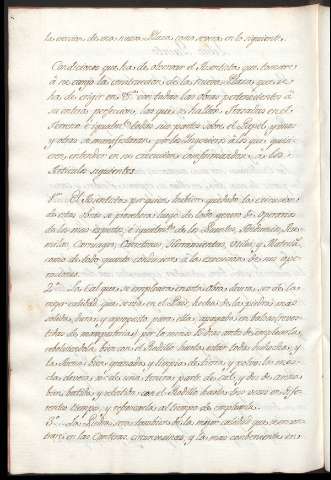 la version de esta nueva Plaza como consta en lo siguiente.
Condiciones que ha de observar el Asentista que tomare
à su cargo la construccion de la nueva Plaza, que se
ha de erigir en S.n con todas las obras pertenecientes à
su entera perfeccion, las que se hallan trazadas en el
terreno è igualm.te todas sus partes sobre el Papel, y unas
y otras se manifestaran por los Ingenieros à los que quisie-
ren entender en su execucion conformandose à los
Articulos siguientes.
1.º El Asentista por quien hubiere quedado la execucion
de estas Obras se proveherá luego de todo genero de Operarios
de los mas expertos, è igualm.te de los Puentes, Andamios, Ser-
villas, Carruages, Carretones, Herramientas, Utiles, y Materia-
como de todo quanto conduxere à la execucion de sus ope-
raciones.
2.º La Cal que se empleare en esta obra devera ser de la
mejor calidad que se halle en el Pais, hecha de las piedras mas
solidas, dura, y à proposito para ello; apagada en balsas, reves-
tidas de mamposteria, por lo menos 15 dias antes de emplearla,
rebolviendola bien con el Rodillo hasta estar toda desecha, y
la Arena bien graneada y limpia de tierra, y polvo; la mez-
cla devera ser de una tercera parte de cal, y dos de arena,
bien batida, y rebatida con el Rodillo hasta tres veces en dife-
rentes tiempos, y refrescarla al tiempo de emplearla.
3.º La Piedra sera tambien de la mejor calidad que se encon-
trare en las Canteras circunvecinas, y la mas conveniente en